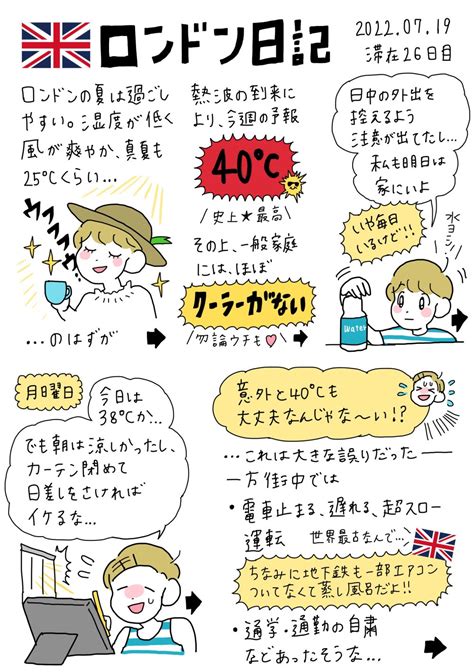 ロンドン日記
2022.07.19
滞在26日目
ロンドンの夏は過ごし
やすい。湿度が低く
風が爽やか、真夏も
25℃くらい…
ウフフフフ
…のはずが
熱波の到来に
より、今週の予報
40℃
史上★最高
その上、一般家庭
には、ほぼ
クーラーがない
勿論ウチも♥
日中の外出を
控えるよう
注意が出てたし…
私も明日は
家にいよ
いや毎日
いるけど!!
水ヨシ!
Water
月曜日
今日は
38℃か…
でも朝は涼しかったし、
カーテン閉めて
日差しをさければ
イケるな…
意外と40℃も
大丈夫なんじゃな〜い!?
…これは大きな誤りだった──
一方街中では
・電車止まる、遅れる、超スロー
運転 世界最古なんで…
ちなみに地下鉄も一部エアコン
ついてなくて蒸し風呂だよ!!
・通学・通勤の自粛
などあったそうな…